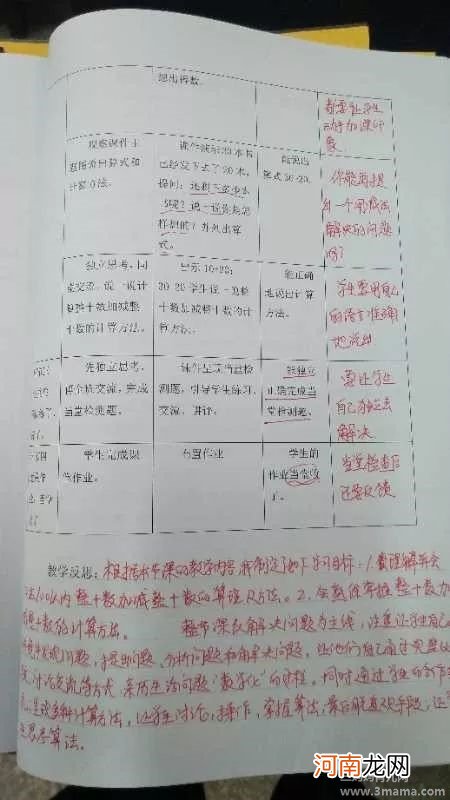 想出得数。
需要让学生
加深印
象
观察课件主
题图列出算式和
计算方法。
课件演示30本书
已经发下去了20本,
提问:还剩下多少本
书呢?说一说你是怎
样想的?并列出算
式。
能说出
算式30-20.
你能再提
出一个用减法
解决的问题
吗?
独立思考,同
桌交流,说一说计
算整十数加减整
十数的计算方法。
出示10+20;
30-20学生说一说整
十数加减整十数的计
算方法。
能正确
地说出计算
方法。
学生要用自己
的语言准确
地说出
先独立思考,
再全班交流,完成
当堂检测题。
课件呈现当堂检
测题,引导学生练习、
交流、讲评。
能独立
正确完成当
堂检测题。
要让学生
自己尝试去
解决
学生完成课
堂作业。
布置作业
学生的
作业当堂收
了。
当堂检查后
还要反馈
教学反思:根据本节课的教学内容,我制定了如下学习目标:1.
100以内整十数加减整十数的算理及方法。2.会熟练掌握整十数加
整十数的计算方法。 整节课以解决问题为主线,注重让学生自己
发现问题,提出问题、分析问题和解决问题,让他们自己通过
讨论交流等方式,亲历生活问题“数学化”的过程。同时通过学生的
呈现多种计算方法,让学生讨论,操作,掌握算法,最后
算法。
河南龙网
www.3mama.com